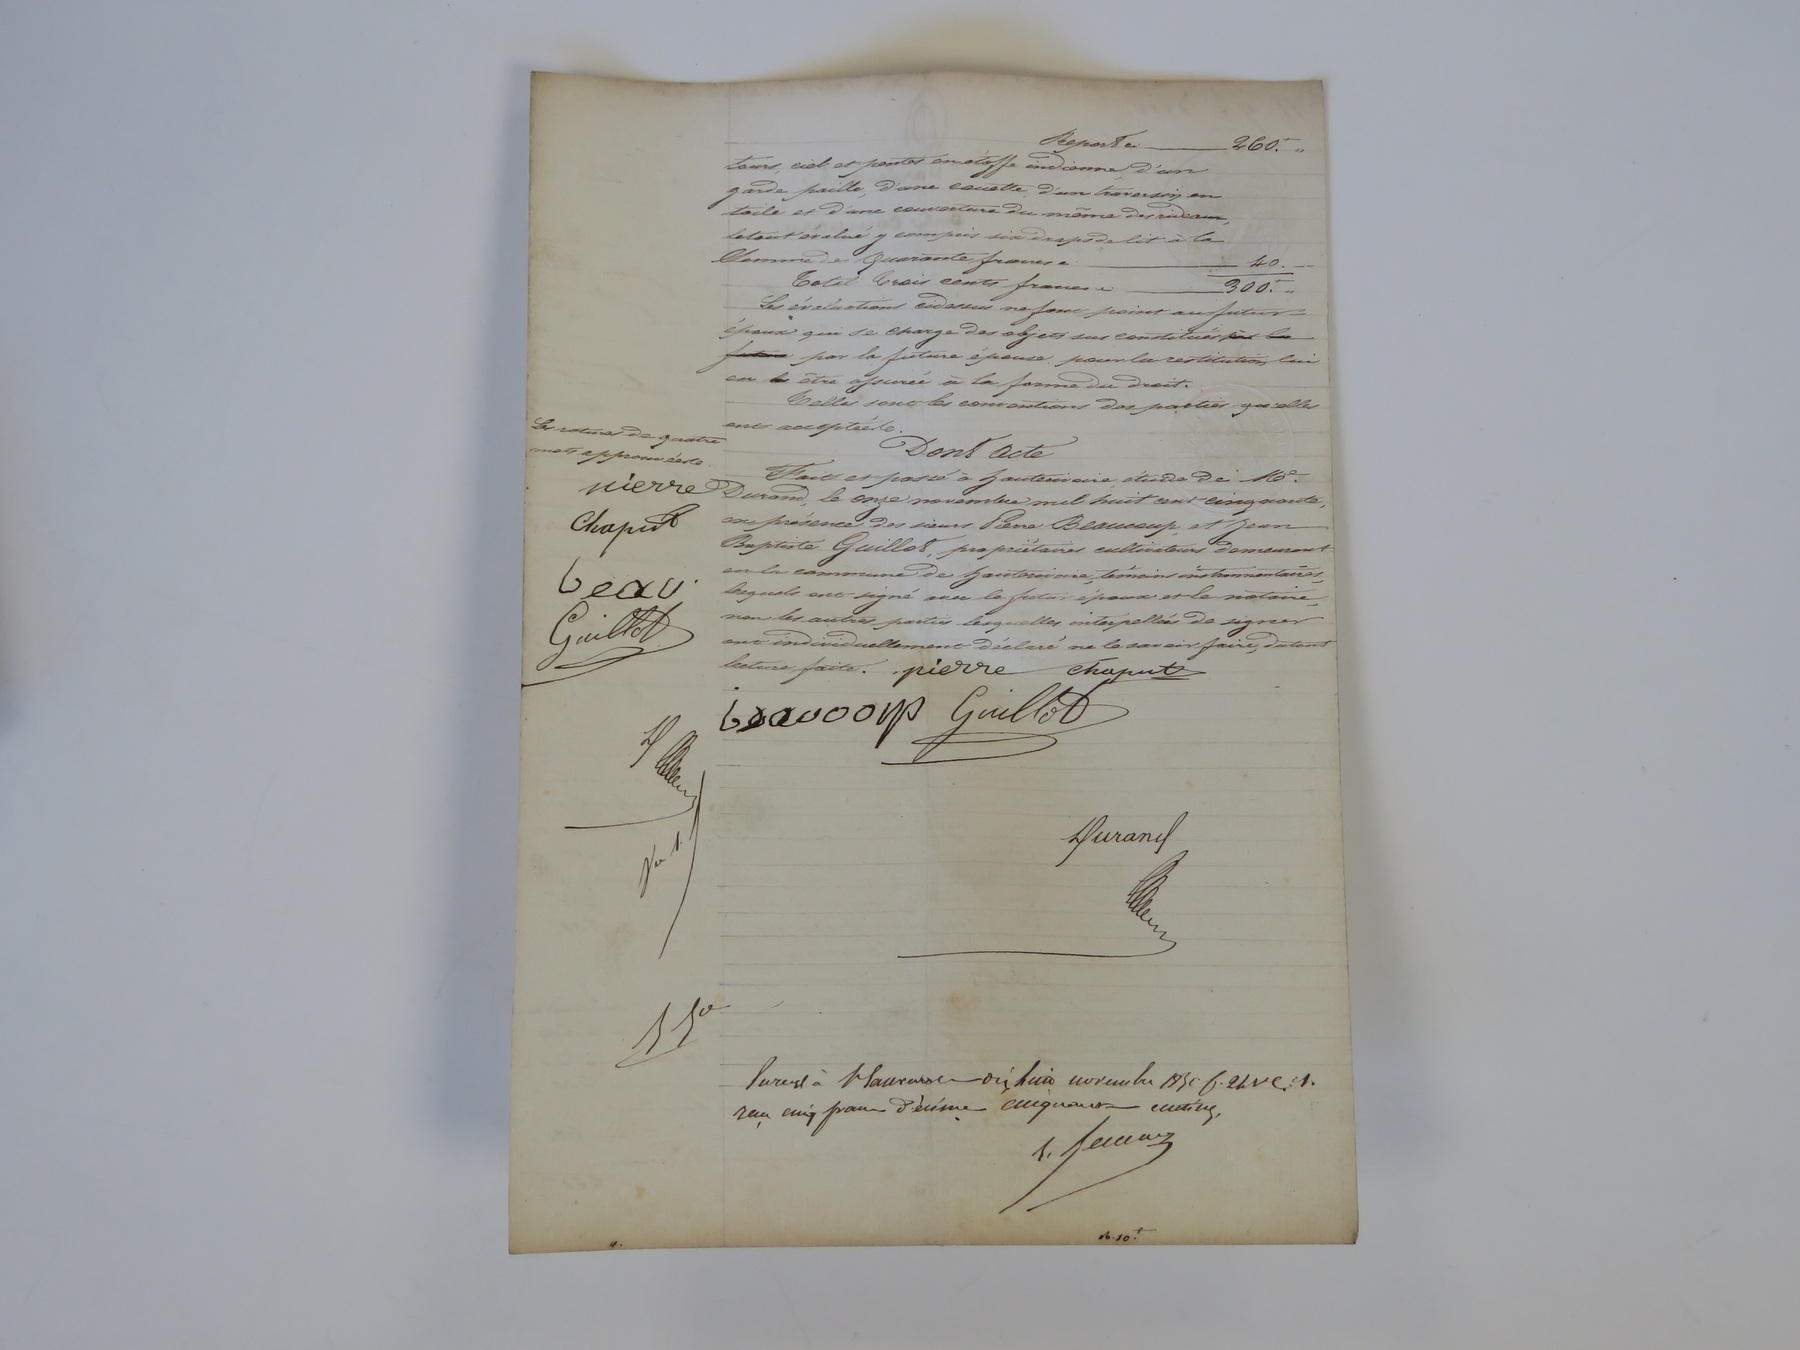 Report 260.f "
tours, ciel et pentes en étoffe indienne, d'un
garde paille, d'une couette, d'un traversin en
toile et d'une couverture du même des rideaux,
le tout évalué y compris six draps de lit à la
Somme de quarante francs 40. —
Total trois cents francs 300.f "
Les évaluations cidessus ne font point au futur
époux qui se charge des objets sus constitués par la
future par la future épouse, pour la restitution lui
en être assurée à la forme du droit.
Telles sont les conventions des parties qu'elles
ont acceptées.
Dont Acte
Fait et passé à hauterivoire, étude de Me.
Durand, le onze novembre mil huit cent cinquante,
en présence des sieurs Pierre Beaucoup, et Jean
Baptiste Guillot, propriétaires cultivateurs demeurant
en la commune de hauterivoire, témoins instrumentaires,
lesquels ont signé avec le futur époux et le notaire,
non les autres parties lesquelles interpellées de signer
ont individuellement déclaré ne le savoir faire, du tout
lecture faite. pierre chaput
beaucoup Guillot
Les ratures de quatre
mots approuvées
pierre
chaput
beau
Guillot
D
Durand
à St Laurent dix huit novembre 1850 f. 24 v c. 1.
reçu cinq francs décime cinquante centimes,
10 f